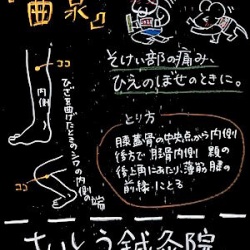 『曲泉』
そけい部の痛み、
ひえのぼせのときに。
ココ
内側
ひざを曲げたときのシワの内側の端
ココ
とり方
膝蓋骨の中央点から内側
後方で、脛骨内側顆の
後上角にあたり、薄筋腱の
前縁にとる
さいとう鍼灸院